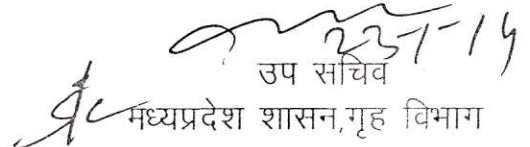 23-1-14
उप सचिव
मध्यप्रदेश शासन,गृह विभाग